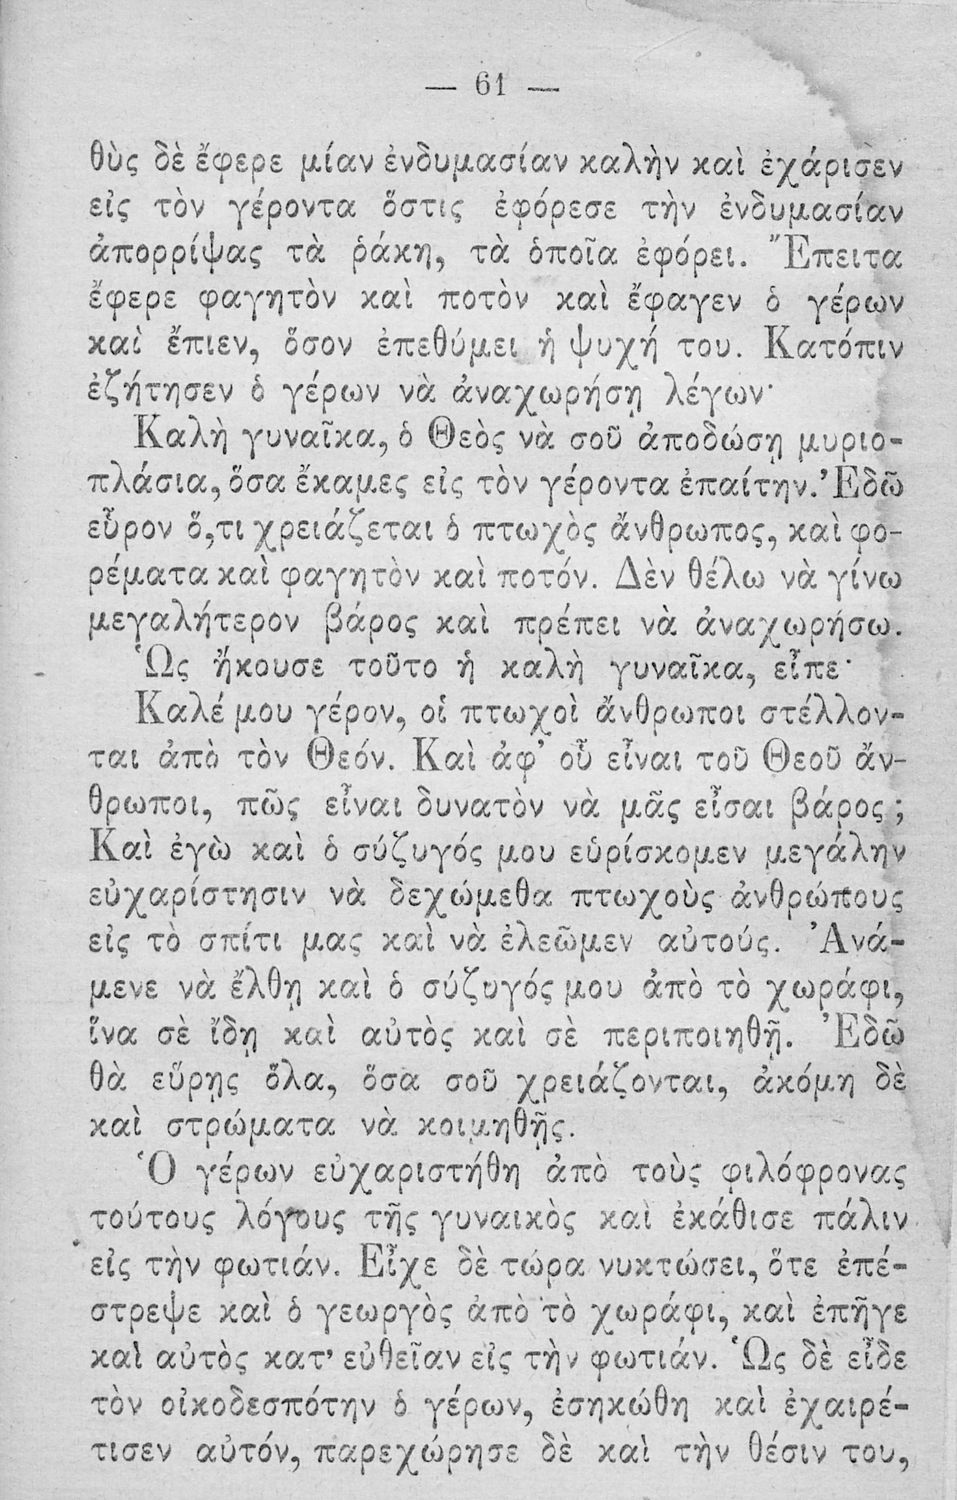 — 61 —
θὺς δὲ ἔφερε μίαν ἐνδυμασίαν καλὴν καὶ ἐχάρισεν
εἰς τὸν γέροντα ὅστις ἐφόρεσε τὴν ἐνδυμασίαν
ἀπορρίψας τὰ ῥάκη, τὰ ὁποῖα ἐφόρει. Ἔπειτα
ἔφερε φαγητὸν καὶ ποτὸν καὶ ἔφαγεν ὁ γέρων
καὶ ἔπιεν, ὅσον ἐπεθύμει ἡ ψυχή του. Κατόπιν
ἐζήτησεν ὁ γέρων νὰ ἀναχωρήσῃ λέγων·
Καλὴ γυναῖκα, ὁ Θεὸς νὰ σοῦ ἀποδώσῃ μυριο-
πλάσια, ὅσα ἔκαμες εἰς τὸν γέροντα ἐπαίτην. Ἐδῶ
εὗρον ὅ,τι χρειάζεται ὁ πτωχὸς ἄνθρωπος, καὶ φο-
ρέματα καὶ φαγητὸν καὶ ποτόν. Δὲν θέλω νὰ γίνω
μεγαλήτερον βάρος καὶ πρέπει νὰ ἀναχωρήσω.
Ὡς ἤκουσε τοῦτο ἡ καλὴ γυναῖκα, εἶπε·
Καλέ μου γέρον, οἱ πτωχοὶ ἄνθρωποι στέλλον-
ται ἀπὸ τὸν Θεόν. Καὶ ἀφ’ οὗ εἶναι τοῦ Θεοῦ ἄν-
θρωποι, πῶς εἶναι δυνατὸν νὰ μᾶς εἶσαι βάρος ;
Καὶ ἐγὼ καὶ ὁ σύζυγός μου εὑρίσκομεν μεγάλην
εὐχαρίστησιν νὰ δεχώμεθα πτωχοὺς ἀνθρώπους
εἰς τὸ σπίτι μας καὶ νὰ ἐλεῶμεν αὐτούς. Ἀνά-
μενε νὰ ἔλθῃ καὶ ὁ σύζυγός μου ἀπὸ τὸ χωράφι,
ἵνα σὲ ἴδῃ καὶ αὐτὸς καὶ σὲ περιποιηθῇ. Ἐδῶ
θὰ εὕρῃς ὅλα, ὅσα σοῦ χρειάζονται, ἀκόμη δὲ
καὶ στρώματα νὰ κοιμηθῇς.
Ὁ γέρων εὐχαριστήθη ἀπὸ τοὺς φιλόφρονας
τούτους λόγους τῆς γυναικὸς καὶ ἐκάθισε πάλιν
εἰς τὴν φωτιάν. Εἶχε δὲ τώρα νυκτώσει, ὅτε ἐπέ-
στρεψε καὶ ὁ γεωργὸς ἀπὸ τὸ χωράφι, καὶ ἐπῆγε
καὶ αὐτὸς κατ’ εὐθεῖαν εἰς τὴν φωτιάν. Ὡς δὲ εἶδε
τὸν οἰκοδεσπότην ὁ γέρων, ἐσηκώθη καὶ ἐχαιρέ-
τισεν αὐτόν, παρεχώρησε δὲ καὶ τὴν θέσιν του,